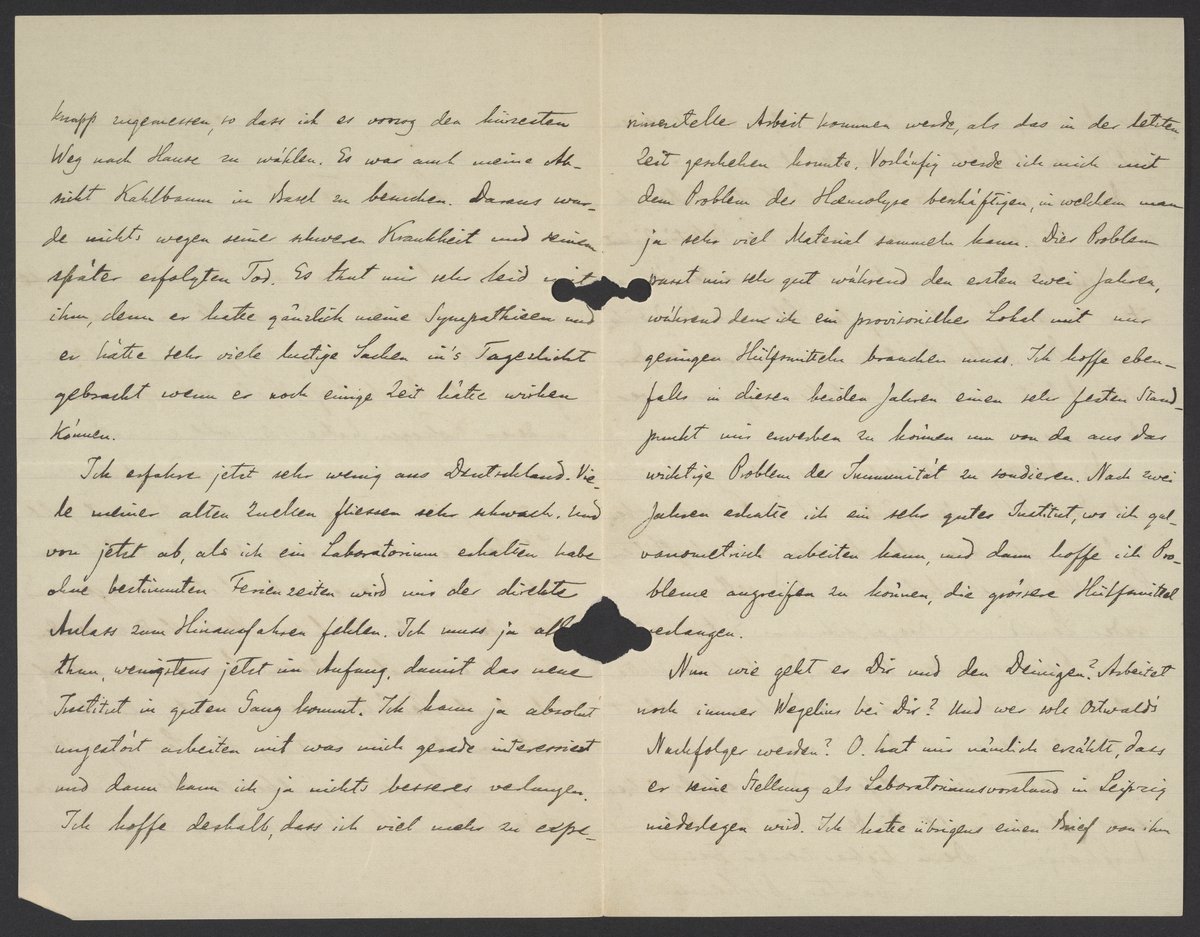 knapp zugemessen, so dass ich es vorzog den kürzesten
Weg nach Hause zu wählen. Es war auch meine Ab-
sicht Kahlbaum in Basel zu besuchen. Daraus wur-
de nichts wegen seiner schweren Krankheit und seinem
später erfolgten Tod. Es thut mir sehr leid mit
ihm, denn er hatte gänzlich meine Sympathieen und
er hätte sehr viele lustige Sachen in's Tageslicht
gebracht wenn er noch einige Zeit hätte wirken
können.
Ich erfahre jetzt sehr wenig aus Deutschland. Vie-
le meiner alten Quellen fliessen sehr schwach. Und
von jetzt ab, als ich ein Laboratorium erhalten habe
ohne bestimmten Ferienzeiten wird mir der direkte
Anlass zum Hinausfahren fehlen. Ich muss ja
thun, wenigstens jetzt im Anfang, damit das neue
Institut in guten Gang kommt. Ich kann ja absolut
ungestört arbeiten mit was mich gerade interessiert
und dann kann ich ja nichts besseres verlangen.
Ich hoffe deshalb, dass ich viel mehr zu expe-
rimenteller Arbeit kommen werde, als das in der letzten
Zeit geschehen konnte. Vorläufig werde ich mich mit
dem Problem der Hæmolyse beschäftigen, in welchem man
ja sehr viel Material sammeln kann. Dies Problem
passt mir sehr gut während den ersten zwei Jahren,
während denen ich ein provisorisches Lokal mit nur
geringen Hülfsmitteln brauchen muss. Ich hoffe eben-
falls in diesen beiden Jahren einen sehr festen Stand-
punkt mir erwerben zu können um von da aus das
wichtige Problem der Immunität zu sondieren. Nach zwei
Jahren erhalte ich ein sehr gutes Institut, wo ich gal-
vanometrisch arbeiten kann, und dann hoffe ich Pro-
bleme angreifen zu können, die grössere Hülfsmittel
verlangen.
Nun wie geht es Dir und den Deinigen? Arbeitet
noch immer Wegelius bei Dir? Und wer soll Ostwald's
Nachfolger werden? O. hat mir nämlich erzählt, dass
er seine Stellung als Laboratoriumsvorstand in Leipzig
niederlegen wird. Ich hatte übrigens einen Brief von ihm